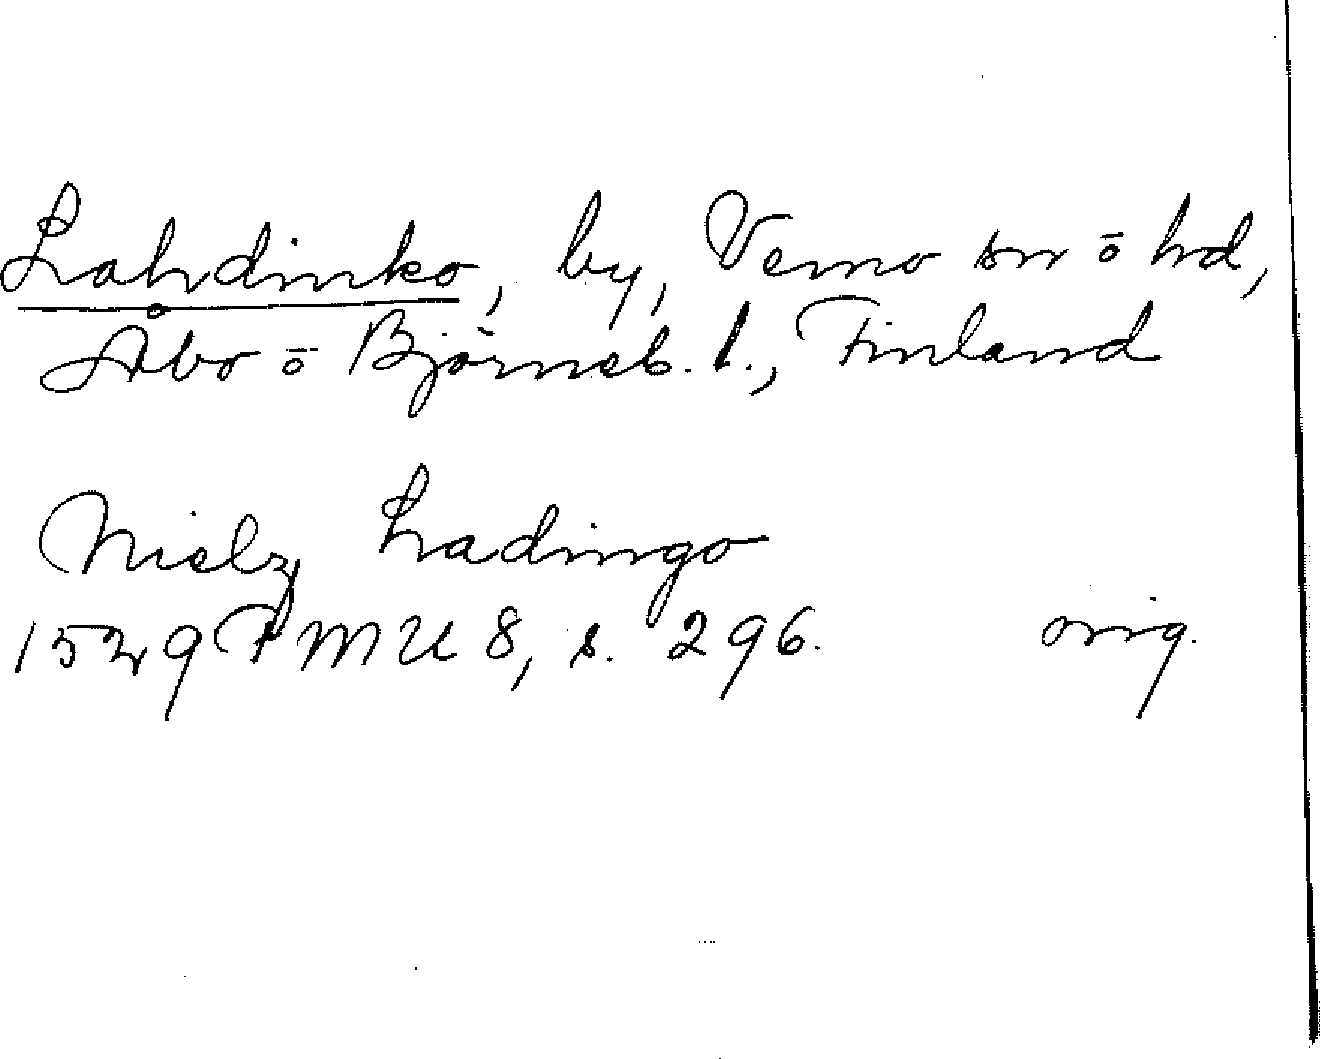 Lahdinko, by, Vemo sn ō hd,
Åbo ō Björneb. l., Finland
Nielz Ladingo
1529 FMU 8, s. 296. orig.